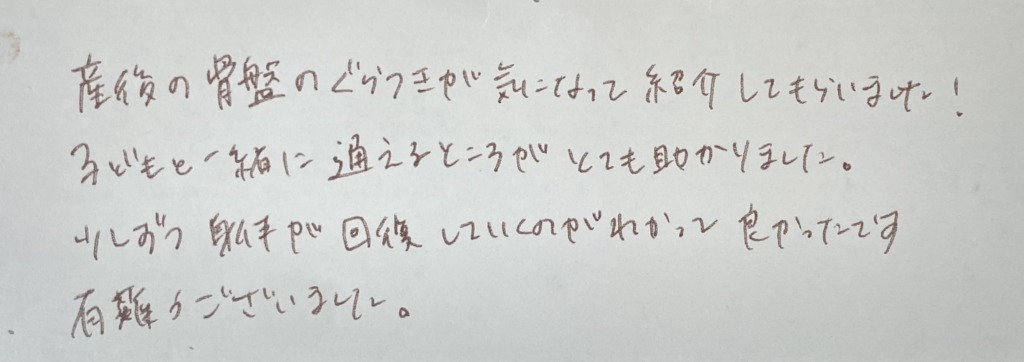 産後の骨盤のぐらつきが気になって紹介してもらいました!
子どもと一緒に通えるところがとても助かりました。
少しずつ が回復していくのがわかって良かったです
有難うございました。